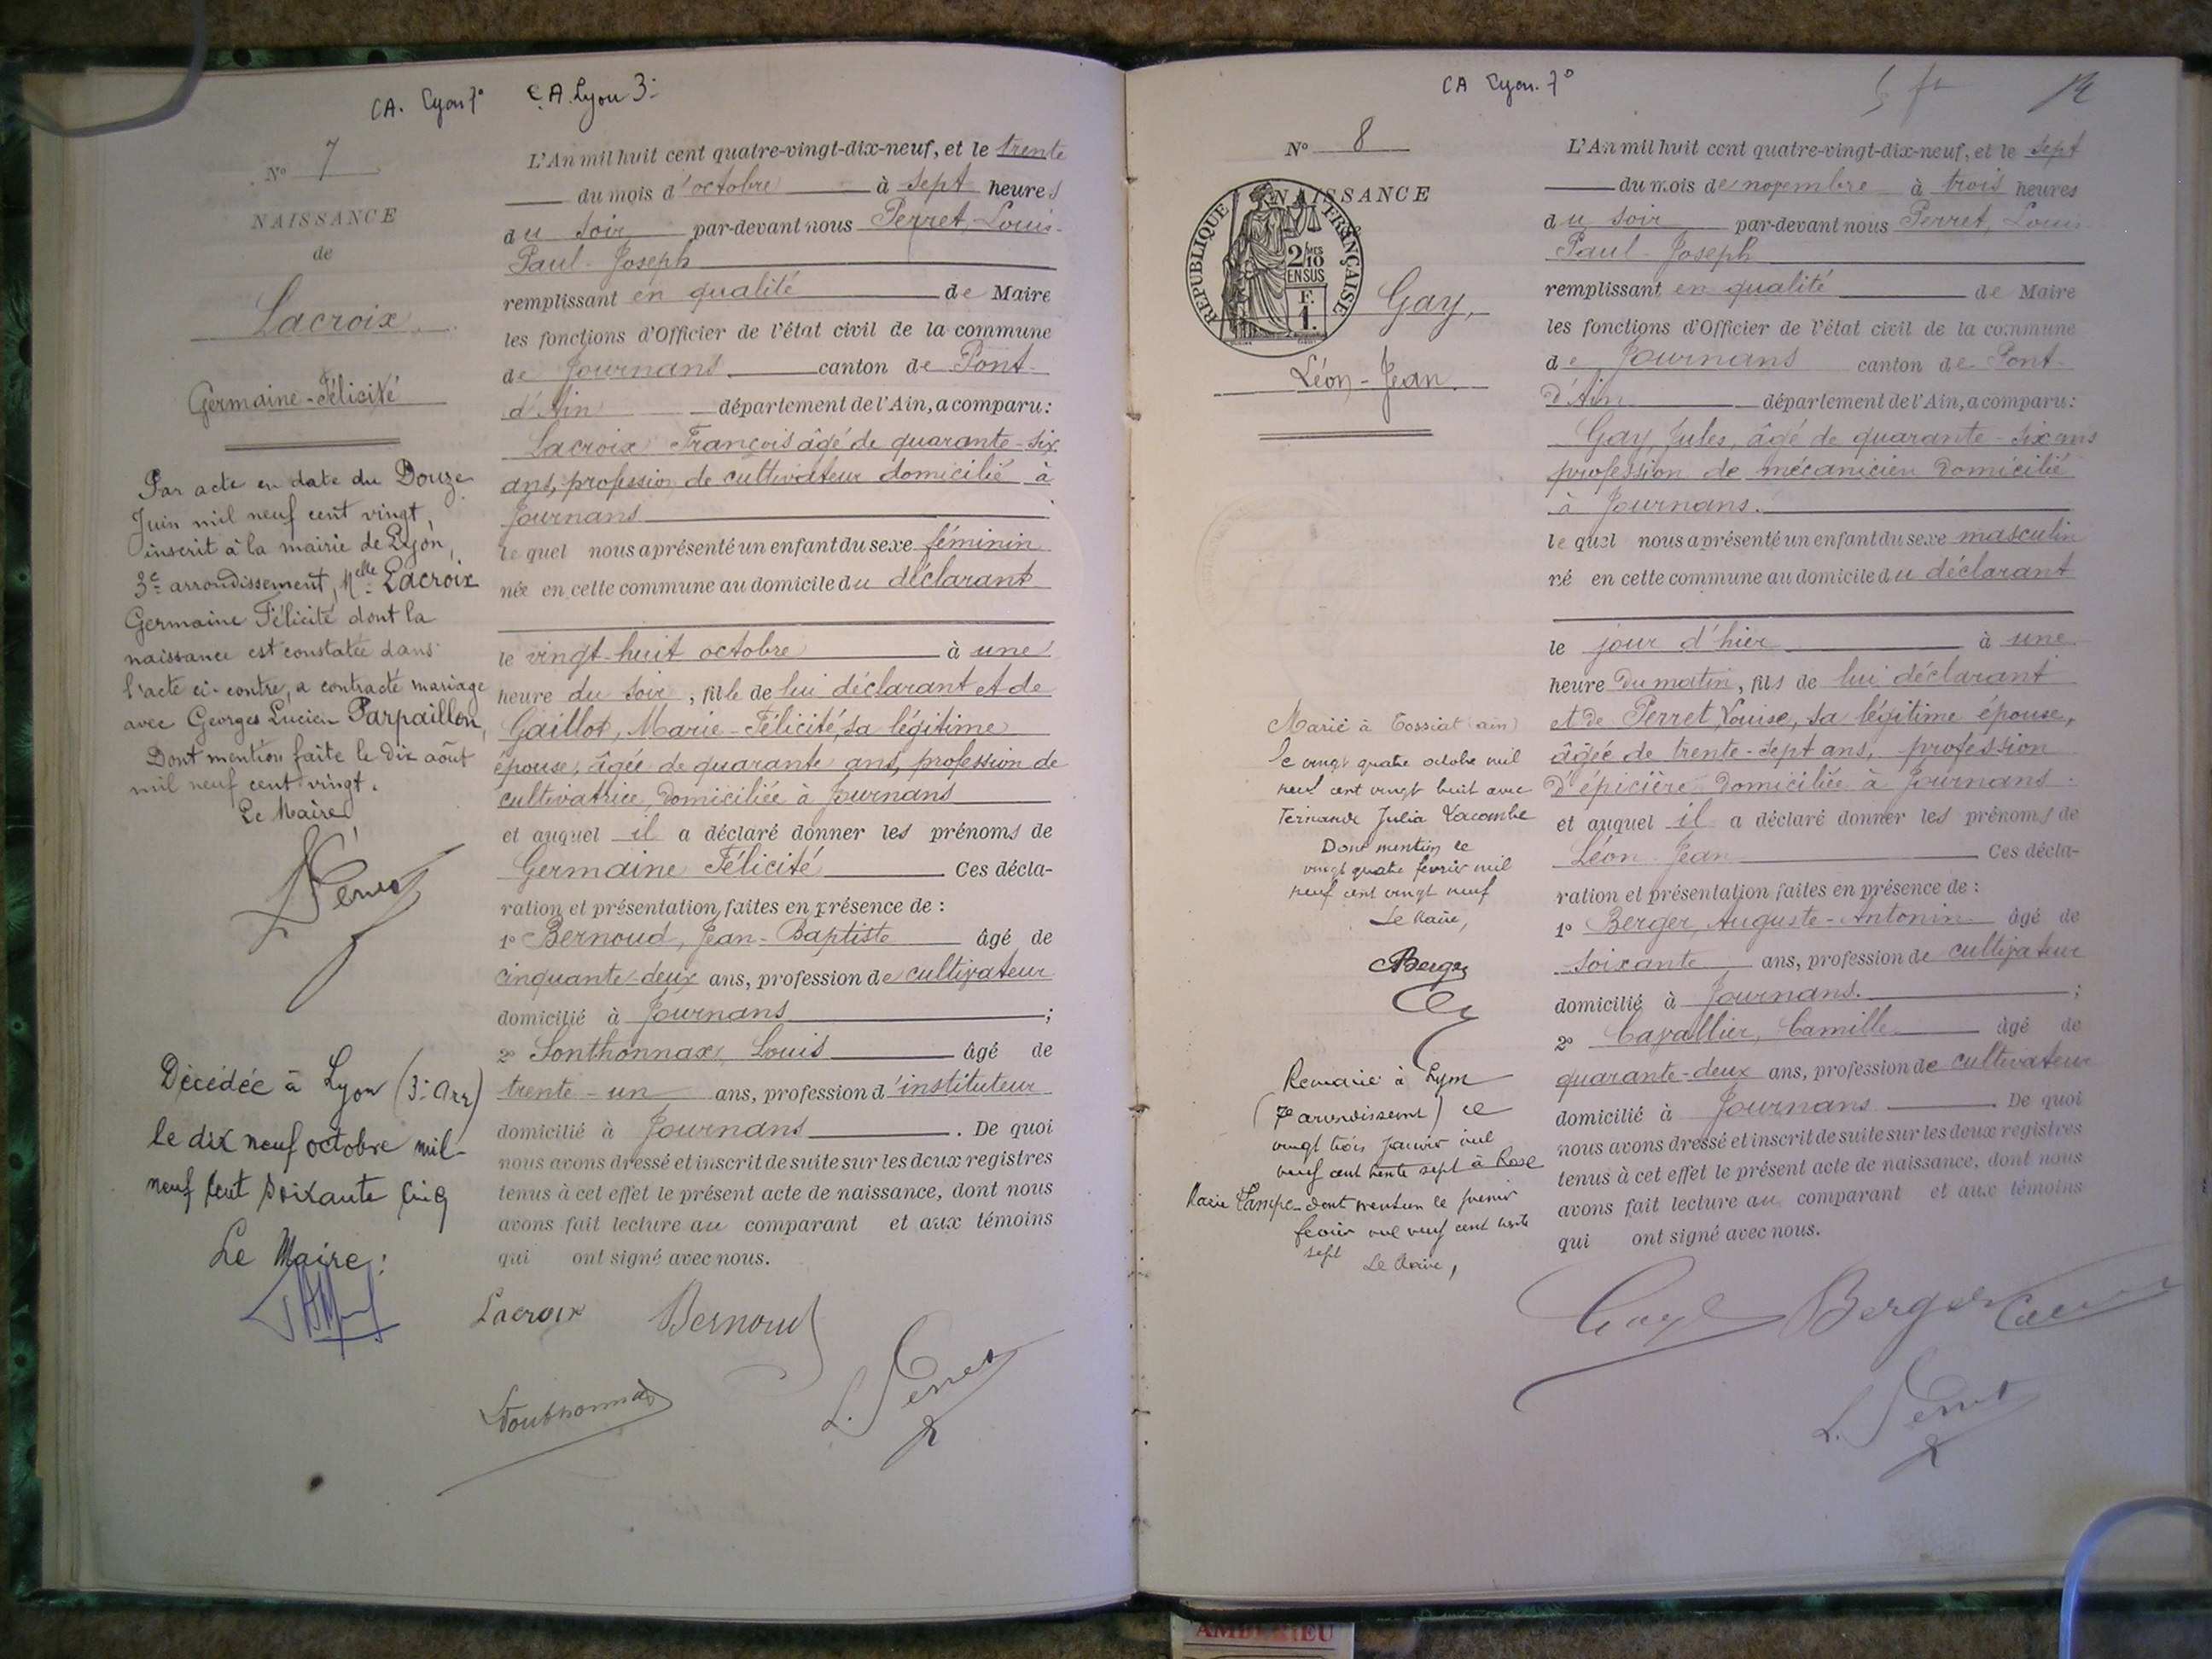 CA. Lyon 7º C.A. Lyon 3e
Nº 7
NAISSANCE
de
Lacroix
Germaine-Félicité
Par acte en date du Douze
Juin mil neuf cent vingt,
inscrit à la mairie de Lyon,
3e arrondissement, Melle Lacroix
Germaine Félicité dont la
naissance est constatée dans
l'acte ci-contre, a contracté mariage
avec Georges Lucien Parpaillon,
Dont mention faite le dix août
mil neuf cent vingt.
Le Maire,
L. Perret
Décédée à Lyon (3e Arr)
le dix neuf octobre mil-
neuf cent soixante cinq
Le Maire:
L'An mil huit cent quatre-vingt-dix-neuf, et le trente
du mois d'octobre à sept heures
du soir par-devant nous Perret, Louis-
Paul-Joseph
remplissant en qualité de Maire
les fonctions d'Officier de l'état civil de la commune
de Journans canton de Pont-
d'Ain département de l'Ain, a comparu:
Lacroix François âgé de quarante-six
ans, profession de cultivateur domicilié à
Journans
lequel nous a présenté un enfant du sexe féminin
née en cette commune au domicile du déclarant
le vingt-huit octobre à une
heure du soir, fille de lui déclarant et de
Gaillot, Marie-Félicité, sa légitime
épouse, âgée de quarante ans, profession de
cultivatrice, domiciliée à Journans
et auquel il a déclaré donner les prénoms de
Germaine Félicité Ces décla-
ration et présentation faites en présence de :
1º Bernoud, Jean-Baptiste âgé de
cinquante-deux ans, profession de cultivateur
domicilié à Journans ;
2º Sonthonnax, Louis âgé de
trente-un ans, profession d'instituteur
domicilié à Journans . De quoi
nous avons dressé et inscrit de suite sur les deux registres
tenus à cet effet le présent acte de naissance, dont nous
avons fait lecture au comparant et aux témoins
qui ont signé avec nous.
Lacroix Bernoud
Sonthonnax L. Perret
CA Lyon. 7º
12
Nº 8
NAISSANCE
REPUBLIQUE FRANÇAISE
2/10
EN SUS
F.
1.
Gay,
Léon-Jean
Marié à Tossiat (ain)
le vingt quatre octobre mil
neuf cent vingt huit avec
Fernande Julia Lacombe
Dont mention le
vingt quatre février mil
neuf cent vingt neuf
Le Maire,
Berger
Remarié à Lyon
(7e arrondissement) le
vingt trois janvier mil
neuf cent trente sept à Rose
Marie dont mention le premier
fevrier mil neuf cent trente
sept Le Maire,
L'An mil huit cent quatre-vingt-dix-neuf, et le sept
du mois de novembre à trois heures
du soir par-devant nous Perret, Louis-
Paul-Joseph
remplissant en qualité de Maire
les fonctions d'Officier de l'état civil de la commune
de Journans canton de Pont-
d'Ain département de l'Ain, a comparu:
Gay, Jules, âgé de quarante-six ans
profession de mécanicien domicilié
à Journans.
lequel nous a présenté un enfant du sexe masculin
né en cette commune au domicile du déclarant
le jour d'hier à une
heure du matin, fils de lui déclarant
et de Perret, Louise, sa légitime épouse,
âgée de trente-sept ans, profession
d'épicière domiciliée à Journans.
et auquel il a déclaré donner les prénoms de
Léon-Jean Ces décla-
ration et présentation faites en présence de :
1º Berger, Auguste-Antonin âgé de
soixante ans, profession de cultivateur
domicilié à Journans. ;
2º Cavallier, Camille âgé de
quarante-deux ans, profession de cultivateur
domicilié à Journans . De quoi
nous avons dressé et inscrit de suite sur les deux registres
tenus à cet effet le présent acte de naissance, dont nous
avons fait lecture au comparant et aux témoins
qui ont signé avec nous.
Gay Berger
L. Perret
AMBERIEU